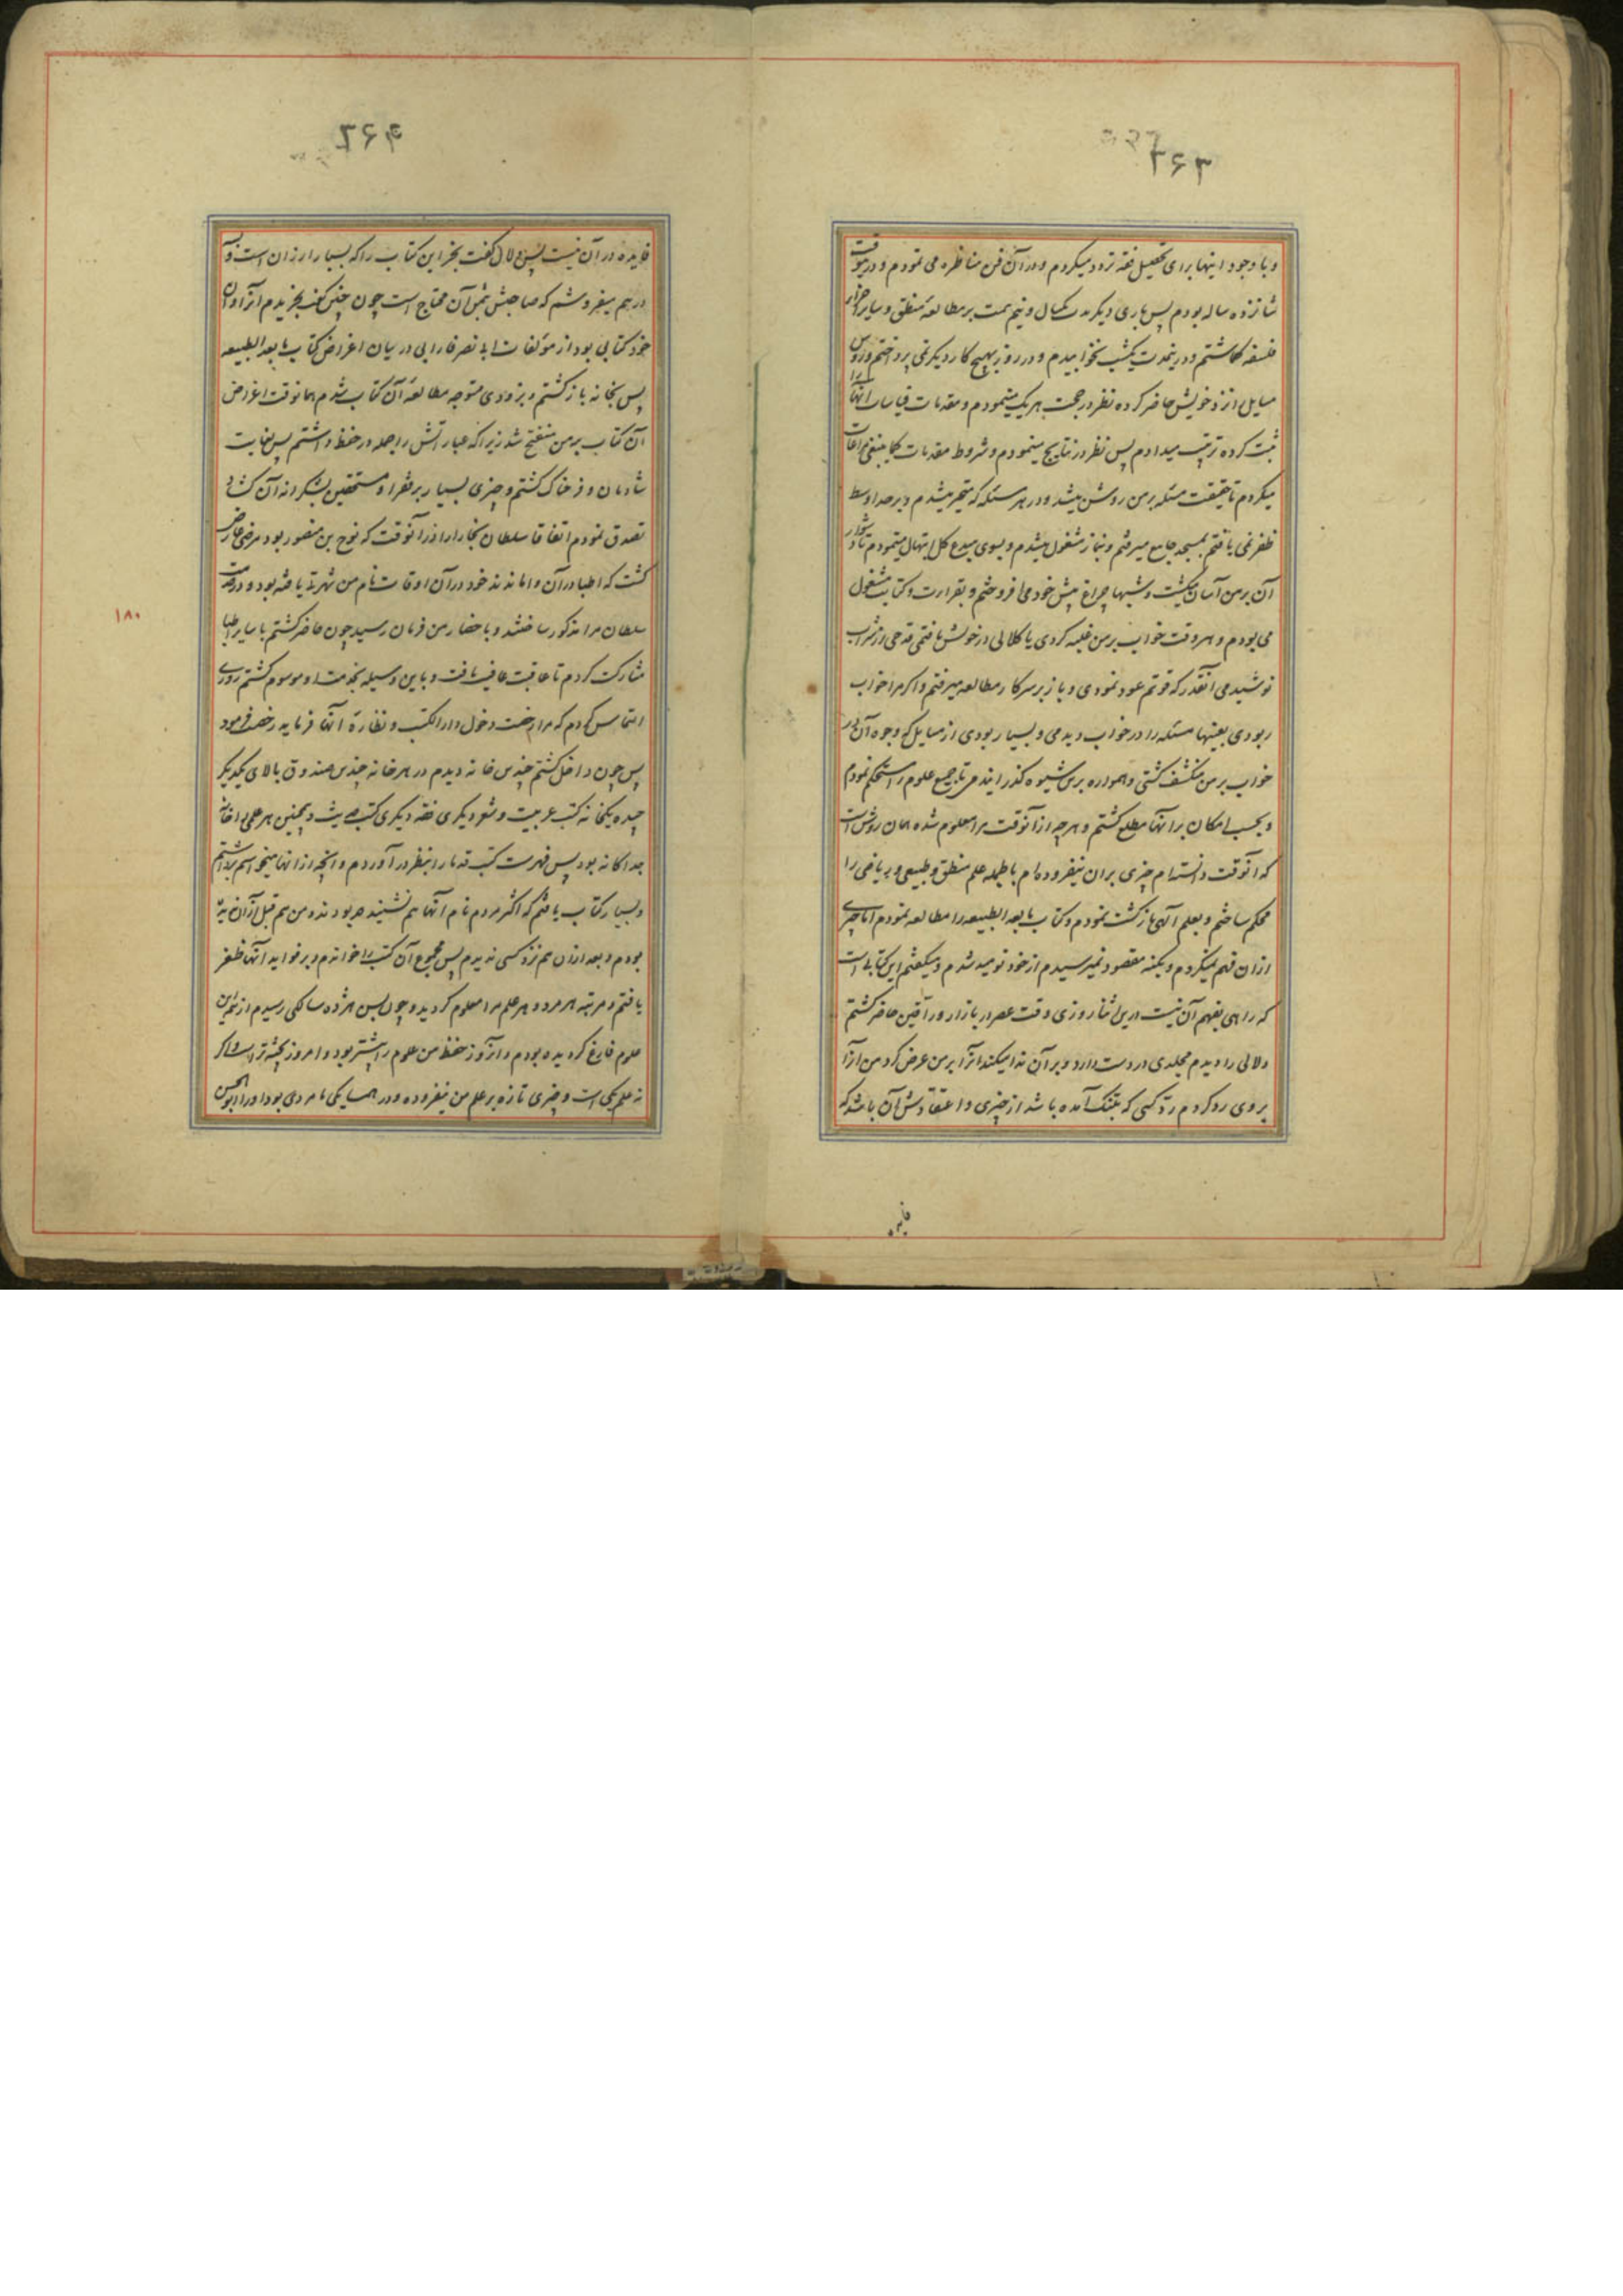 وبا وجود اینها برای تحصیل فقه تردد میکردم و در آن فن مناظره می نمودم و درینوقت
شانزده ساله بودم پس باری دیگر مدت یکسال و نیم همت بر مطالعه منطق و سایر اجزاء
فلسفه گماشتم و درینمدت یکشب نخوابیدم و در روز بهیچ کار دیگر نمی پرداختم و رؤس
مسایل از نزد خویش حاضر کرده نظر در حجت هر یک مینمودم و مقدمات قیاسات آنها را
ثبت کرده ترتیب میدادم پس نظر در نتایج مینمودم و شروط مقدمات کما ینبغی مراعات
میکردم تا حقیقت مسئله بر من روشن میشد و در هر مسئله که متحیر میشدم و بر حد اوسط
ظفر نمی یافتم بمسجد جامع میرفتم و بنماز مشغول میشدم و بسوی مبدع کل ابتهال مینمودم تا دشوار
آن بر من آسان میگشت و شبها چراغ پیش خود می افروختم و بقراءت و کتابت مشغول
می بودم و هر وقت خواب بر من غلبه کردی یا کلالی در خویش یافتمی قدحی از شراب
نوشیدمی آنقدر که قوتم عود نمودی و باز بر سر کار مطالعه میرفتم و اگر مرا خواب
ربودی بعینها مسئله را در خواب دیدمی و بسیار بودی از مسایل که وجوه آن در
خواب بر من منکشف گشتی و همواره برین شیوه گذرانیدم تا جمیع علوم را مستحکم نمودم
و بحسب امکان بر آنها مطلع گشتم و هر چه از آنوقت مرا معلوم شده همان روش است
که آنوقت دانسته ام چیزی بران نیفزوده ام بالجمله علم منطق و طبیعی و ریاضی را
محکم ساختم و بعلم الهی بازگشت نمودم و کتاب ما بعد الطبیعه را مطالعه نمودم اما چیزی
ازان فهم نمیکردم و بکنه مقصود نمیرسیدم از خود نومید شدم و میگفتم این کتابی است
که راهی بفهم آن نیست درین اثنا روزی وقت عصر در بازار وراقین حاضر گشتم
دلالی را دیدم مجلدی در دست دارد و بر آن ندا میکند آنرا بر من عرض کرد من آنرا
بر وی رد کردم رد کسی که بتنگ آمده باشد از چیزی و اعتقادش آن باشد که
فایده
۹۶۲
فایده در آن نیست پس دلال گفت بخر این کتاب را که بسیار ارزان است و بسه
درهم میفروشم که صاحبش بثمن آن محتاج است چون چنین گفت بخریدم آنرا و آن
خود کتابی بود از مؤلفات ابا نصر فارابی در بیان اغراض کتاب ما بعد الطبیعه
پس بخانه باز گشتم و بزودی متوجه مطالعه آن کتاب شدم همانوقت اغراض
آن کتاب بر من منفتح شد زیرا که عباراتش را جمله در حفظ داشتم پس بغایت
شادمان و فرحناک گشتم و چیزی بسیار بر فقرا و مستحقین بشکرانه آن گشاد
تصدق نمودم اتفاقا سلطان بخارا را در آنوقت که نوح بن منصور بود مرضی عارض
گشت که اطبا در آن واماندند خود در آن اوقات نام من شهرت یافته بود و در خدمت
سلطان مرا مذکور ساختند و باحضار من فرمان رسید چون حاضر گشتم با سایر اطبا
مشارکت کردم تا عاقبت عافیت یافت و باین وسیله بخدمت او موسوم گشتم روزی
التماس کردم که مرا رخصت دخول دار الکتب و نظاره آنها فرماید رخصت فرمود
پس چون داخل گشتم چندین خانه دیدم در هر خانه چندین صندوق بالای یکدیگر
چیده یکخانه کتب عربیت و شعر دیگری فقه دیگری کتب حدیث و همچنین هر علمی را خانه
جداگانه بود پس فهرست کتب قدما را بنظر در آوردم و آنچه از آنها میخواستم برداشتم
و بسیار کتاب یافتم که اکثر مردم نام آنها هم نشنیده بودند و من هم قبل از آن ندیده
بودم و بعد ازان هم نزد کسی ندیدم پس مجموع آن کتب را خواندم و بر فواید آنها ظفر
یافتم و مرتبه هر مرد و هر علم مرا معلوم گردید و چون بسن هژده سالگی رسیدم از همه این
علوم فارغ گردیده بودم و آنروز حفظ من علوم را بیشتر بود و امروز پخته تر است و اگر
نه علم یکی است و چیزی تازه بر علم من نیفزوده و در همسایگی ما مردی بود او را ابو الحسن
۱۸۰